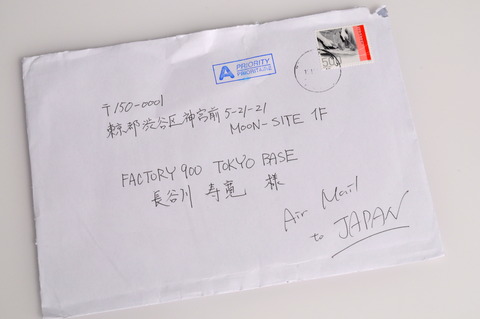 A PRIORITY
PRIORITAIRE
50
〒150-0001
東京都渋谷区神宮前5-21-21
MOON-SITE 1F
FACTORY 900 TOKYO BASE
長谷川 寿寛 様
Air Mail
to JAPAN